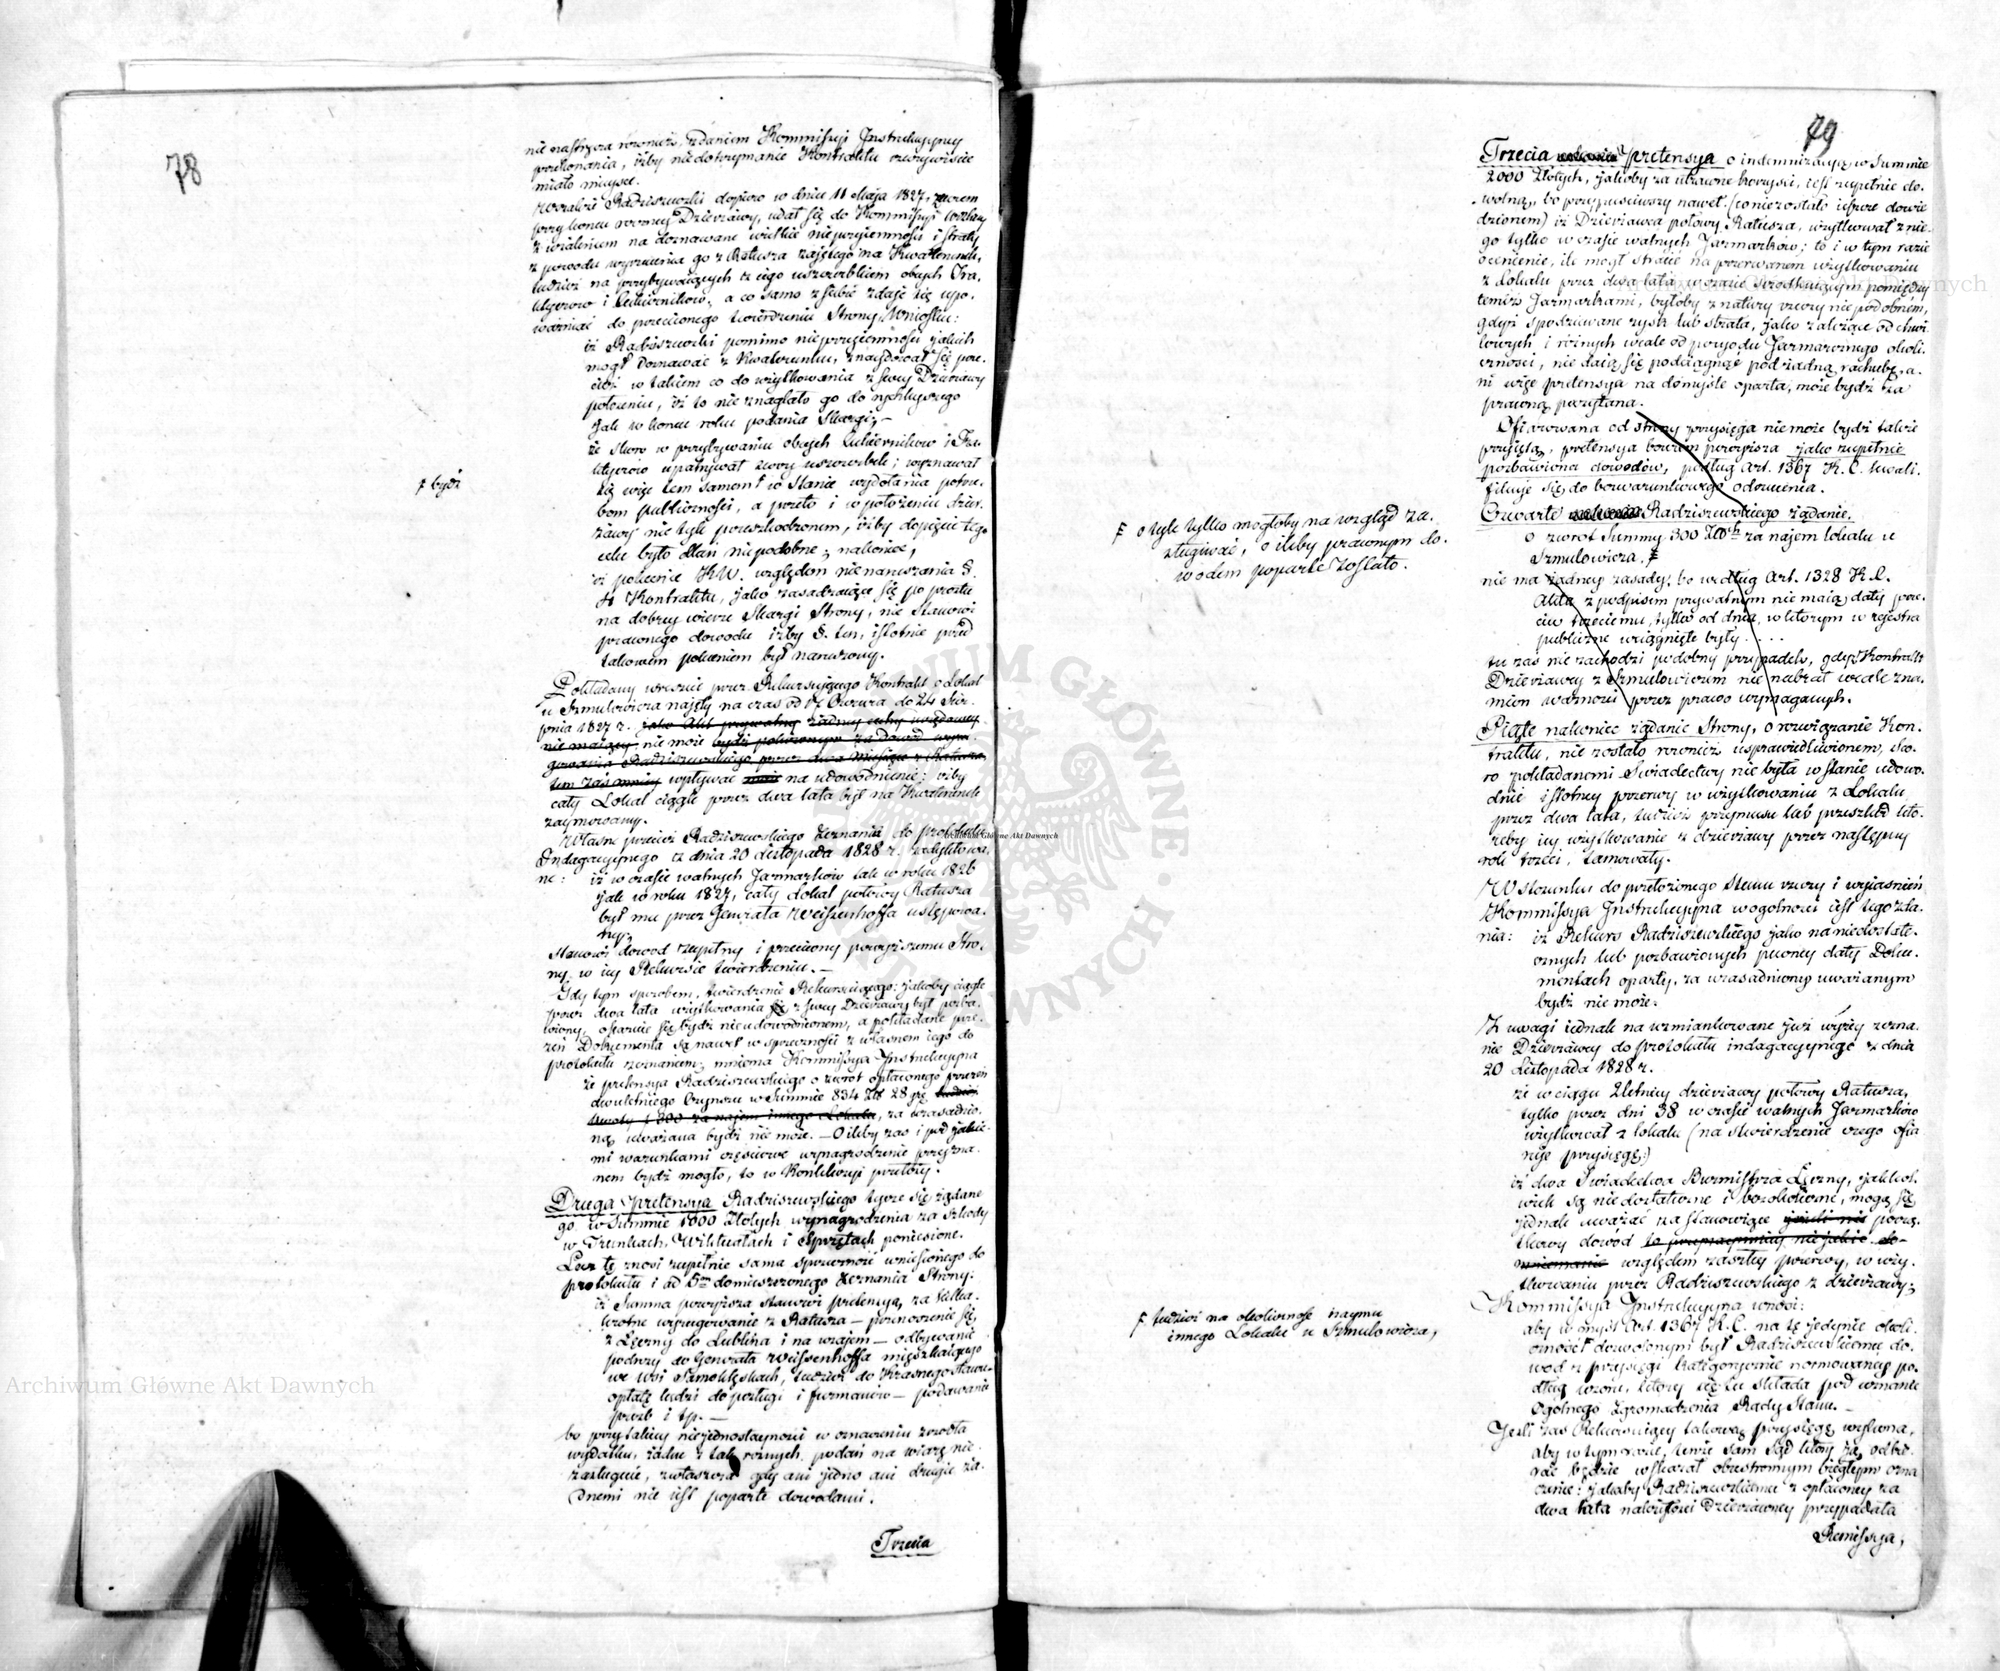 78
nie nastręcza również, zdaniem Kommissyi Instrukcyjney
przekonania, iżby niedotrzymanie Kontraktu rzeczywiście
miało miejsce.
Radziszewski dopiero w dniu 11 Maja 1827,
przy koncu roczney Dzierżawy, udał się do Kommissyi
z wieleniem na doznawane wielkie nieprzyiemności i straty
z powodu wyrzucenia go z Ratusza zajętego na Kwaterunek,
tudzież na przybywających z iego uszczerbkiem obcych Tra-
ktyerow i Cukiernikow, a co samo z siebie zdaje się upo-
ważniać do przeciwnego twierdzeniu Strony, Wniosku:
iż Radziszewski pomimo nieprzyiemności jakich
mogł doznawać z Kwaterunku, znajdował się prze-
cież w takiem co do użytkowania z swey Dzierżawy
położeniu, iż to nie znaglało go do rychleyszego
jak w koncu roku podania Skargi, –
że skoro w przybywaniu obcych Cukiernikow i Tra-
ktyerow upatrywał swoy uszczerbek; wyznawał
się więc tem samem ꝉ w stanie wydołania potrze-
bom publiczności, a przeto i w położeniu dzier-
żawy nie tyle przeszkodzonem, iżby dopięcie tego
celu było dlań niepodobne; nakoniec,
iż polecenie K.W. względem nienaruszania §.
Kontraktu, jako zasadzaiące się po prostu
na dobrey wierze Skargi Strony, nie stanowi
prawnego dowodu iżby §. ten, istotnie przed
takowem poleceniem był naruszony.
ꝉ bydź
Pokładany wreszcie przez Rekursującego Kontrakt o Lokal
u Szmulowicza najęty na czas od 17 Czerwca do 24 Sier-
pnia 1827 r. jako Akt prywatny żadney cechy urzędowey
nie maiący nie może bydź poczytany za dowód wyru-
gowania Radziszewskiego przez dwa Miesiące z Ratusza,
tem zaś mniey wpływać na udowodnienie: iżby
cały Lokal ciągle przez dwa lata był na Kwaterunek
zaymowany.
Własne przecież Radziszewskiego zeznanie do protokułu
Indagacyjnego z dnia 20 Listopada 1828 r. zadyktowa-
ne: iż w czasie walnych Jarmarków tak w roku 1826
jak w roku 1827, cały Lokal połowy Ratusza
był mu przez Generała Weissenhoffa ustępowa-
ny;
stanowi dowod zupełny i przeciwny powyższemu Stro-
ny w iey Rekursie twierdzeniu. –
Gdy tym sposobem, twierdzenie Rekursuiącego: jakoby ciągle
przez dwa lata użytkowania z swey Dzierżawy był pozba-
wiony, okazuie się bydź nieudowodnionem, a pokładane prze-
zeń Dokumenta są nawet w sprzeczności z własnem iego do
protokułu zeznaniem; mniema Kommissya Instrukcyjna
że pretensya Radziszewskiego o zwrot opłaconego przezeń
dwuletniego Czynszu w Summie 834 Zł 28 gr, tudzież
kwoty ł 300 za najem innego Lokalu, za uzasadnio-
ną uważana bydź nie może. – O ileby zaś i pod jakie-
mi warunkami częściowe wynagrodzenie przyzna-
nem bydź mogło, to w Konkluzyi przełoży.
Druga pretensya Radziszewskiego tycze się żądane-
go w Summie 1000 Złotych wynagrodzenia za szkody
w Trunkach, Wiktuałach i Sprzętach poniesione.
Lecz tę znosi zupełnie sama sprzeczność wniesionego do
protokułu i ad 5m domieszczonego zeznania Strony:
iż Summa powyższa stanowi pretensyą za kilka-
krotne wyrugowanie z Ratusza – przenoszenie się
z Łęczny do Lublina i na wzajem – odbywanie
podroży do Generała Weissenhoffa mięszkaiącego
we wsi Samoklęskach, tudzież do Krasnegostawu –
opłatę ludzi do posługi i furmanów – podawanie
prozb i tp. –
bo przy takiey niejednostayności w oznaczeniu źrzodła
wydatku, żadne z tak różnych podań na wiarę nie-
zasługuie, zwłaszcza gdy ani jedno ani drugie ża-
dnemi nie iest poparte dowodami.
Trzecia
79
Trzecia pretensya o indemnizacyą w Summie
2000 Złotych, jakoby za utracone korzyści, iest zupełnie do-
wolną, bo przypuściwszy nawet (co niezostało ieszcze dowie-
dzionem) iż Dzierżawca połowy Ratusza, użytkował z nie-
go tylko w czasie walnych Jarmarków; to i w tym razie
ocenienie, ile mogł stracić na przerwanem użytkowaniu
z Lokalu przez dwa lata, w czasie środkuiącym pomiędzy
temiż Jarmarkami, byłoby z natury rzeczy nie podobném,
gdyż spodziewane zysk lub strata, jako zależące od chwi-
lowych i różnych wcale od peryodu Jarmarcznego okoli-
czności, nie daią się podciągnąć pod żadną rachubę, a-
ni więc pretensya na domyśle oparta, może bydź za
prawną poczytana.
Ofiarowana od strony przysięga nie może bydź także
przyjętą, pretensya bowiem powyższa jako zupełnie
pozbawiona dowodów, podług Art. 1367 K. C. kwali-
fikuje się do bezwarunkowego odrzucenia.
Czwarte Radziszewskiego żądanie.
o zwrot Summy 300 Złotch za najem lokalu u
Szmulowicza, ꝉ
nie ma żadney zasady; bo według Art. 1328 K. C.
Akta z podpisem prywatnym nie maią daty prze-
ciw trzeciemu, tylko od dnia, w ktorym w rejestra
publiczne wciągnięte były . . . .
tu zaś nie zachodzi podobny przypadek, gdyż Kontrakt
Dzierżawy z Szmulowiczem nie nabrał wcale zna-
mion ważności przez prawo wymaganych.
ꝉ o tyle tylko mogłoby na wzgląd za-
sługiwać, o ileby prawnym do-
wodem poparte zostało.
Piąte nakoniec żądanie Strony, o rozwiązanie Kon-
traktu, nie zostało rownież usprawiedliwionem, sko-
ro pokładanemi Świadectwy nie była w stanie udowo-
dnić istotney przerwy w użytkowaniu z Lokalu
przez dwa lata, tudzież przymusu lub przeszkod kto-
reby iey użytkowanie z dzierżawy przez następny
rok trzeci, tamowały.
W stosunku do przełożonego stanu rzeczy i wyiaśnień
Kommissya Instrukcyjna w ogolności iest tego zda-
nia: iż Rekurs Radziszewskiego jako na niedostate-
cznych lub pozbawionych pewney daty Doku-
mentach oparty, za uzasadniony uważanym
bydź nie może.
Z uwagi iednak na wzmiankowane już wyżey zezna-
nie Dzierżawcy do protokułu indagacyjnego z dnia
20 Listopada 1828 r.
że w ciągu 2letniey dzierżawy połowy Ratusza,
tylko przez dni 38 w czasie walnych Jarmarków
użytkował z lokalu (na stwierdzenie czego ofia-
ruje przysięgę:)
iż dwa Świadectwa Burmistrza Łęczny, jakkol-
wiek są niedostateczne i bezskuteczne, mogą się
jednak uważać za stanowiące jeśli nie począ-
tkowy dowod to przynaymniey niejakie do-
mniemanie względem zaszłey przerwy, w uży-
tkowaniu przez Radziszewskiego z dzierżawy;
ꝉ tudzież na okoliczność naymu
innego Lokalu u Szmulowicza,
Kommissya Instrukcyjna wnosi:
aby w myśl Art. 1367 K.C. na tę jedynie okoli-
czność dozwolonym był Radziszewskiemu do-
wod z przysięgi kategorycznie normowaney po-
dług wzoru, ktorey się tu składa pod uznanie
Ogólnego Zgromadzenia Rady Stanu. –
Jeśli zaś Rekursuiący takową przysięgę wykona,
aby w tym razie, tenże sam Sąd który ją odbie-
rać będzie wskazał obustronnym biegłym ozna-
czenie: jakaby Radziszewskiemu z opłaconey za
dwa lata należytości Dzierżawney przypadała
Remissya,